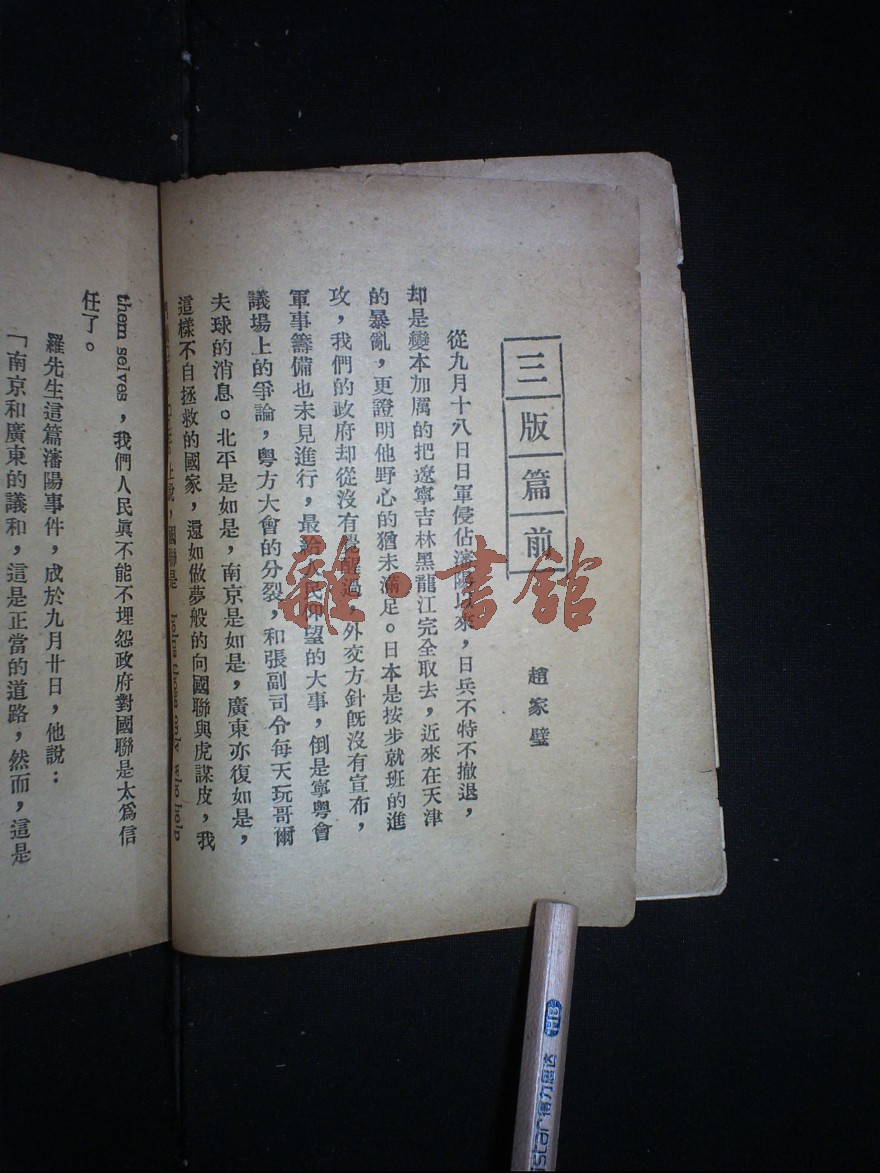 三版篇前
趙家璧
從九月十八日日軍侵佔瀋陽以來，日兵不特不撤退，
却是變本加厲的把遼寧吉林黑龍江完全取去，近來在天津
的暴亂，更證明他野心的猶未滿足。日本是按步就班的進
攻，我們的政府却從沒有覺醒過，外交方針旣沒有宣布，
軍事籌備也未見進行，最給人民仰望的大事，倒是寧粤會
議場上的爭論，粤方大會的分裂，和張副司令每天玩哥爾
夫球的消息。北平是如是，南京是如是，廣東亦復如是，
這樣不自拯救的國家，還如做夢般的向國聯與虎謀皮，我
上說，國聯是 helps those only who help
them selves，我們人民眞不能不埋怨政府對國聯是太爲信
任了。
羅先生這篇瀋陽事件，成於九月廿日，他說：
「南京和廣東的議和，這是正當的道路，然而，這是
雜·書館
HB
star 得力图达